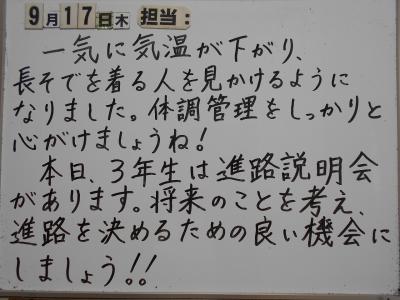 9月17日木 担当:
一気に気温が下がり、
長そでを着る人を見かけるように
なりました。体調管理をしっかりと
心がけましょうね!
本日、3年生は進路説明会
があります。将来のことを考え、
進路を決めるための良い機会に
しましょう!!